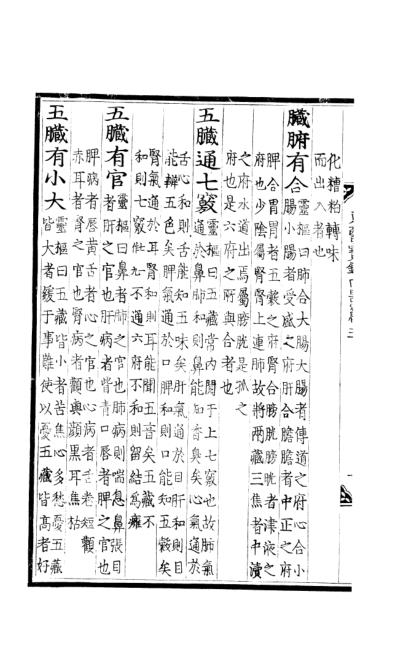 化糟粕轉味
而出入者也
臟腑有合 靈樞曰肺合大腸大腸者傳道之府心合小
腸小腸者受盛之府肝合膽膽者中正之府
脾合胃胃者五穀之府腎合膀胱膀胱者津液之
府也少陰屬腎腎上連肺故將兩藏三焦者中瀆
之府水道出焉屬膀胱是孤之
府也是六府之所與合者也
五臟通七竅 靈樞曰五藏常內閱于上七竅也故肺氣
通於鼻肺和則鼻能知香臭矣心氣通於
舌心和則舌能知五味矣肝氣通於目肝和則目
能辨五色矣脾氣通於口脾和則口能知五穀矣
腎氣通於耳腎和則耳能聞五音矣五藏不
和則七竅不通六府不和則留結爲癰
五臟有官 靈樞曰鼻者肺之官也肺病則喘息鼻張目
者肝之官也肝病者眥青口唇者脾之官也
脾病者唇黃舌者心之官也心病者舌卷短顴
赤耳者腎之官也腎病者顴與顔黑耳焦枯
五臟有小大 靈樞曰五藏皆小者苦焦心多愁憂五藏
皆大者緩於事難使以憂五藏皆高者好